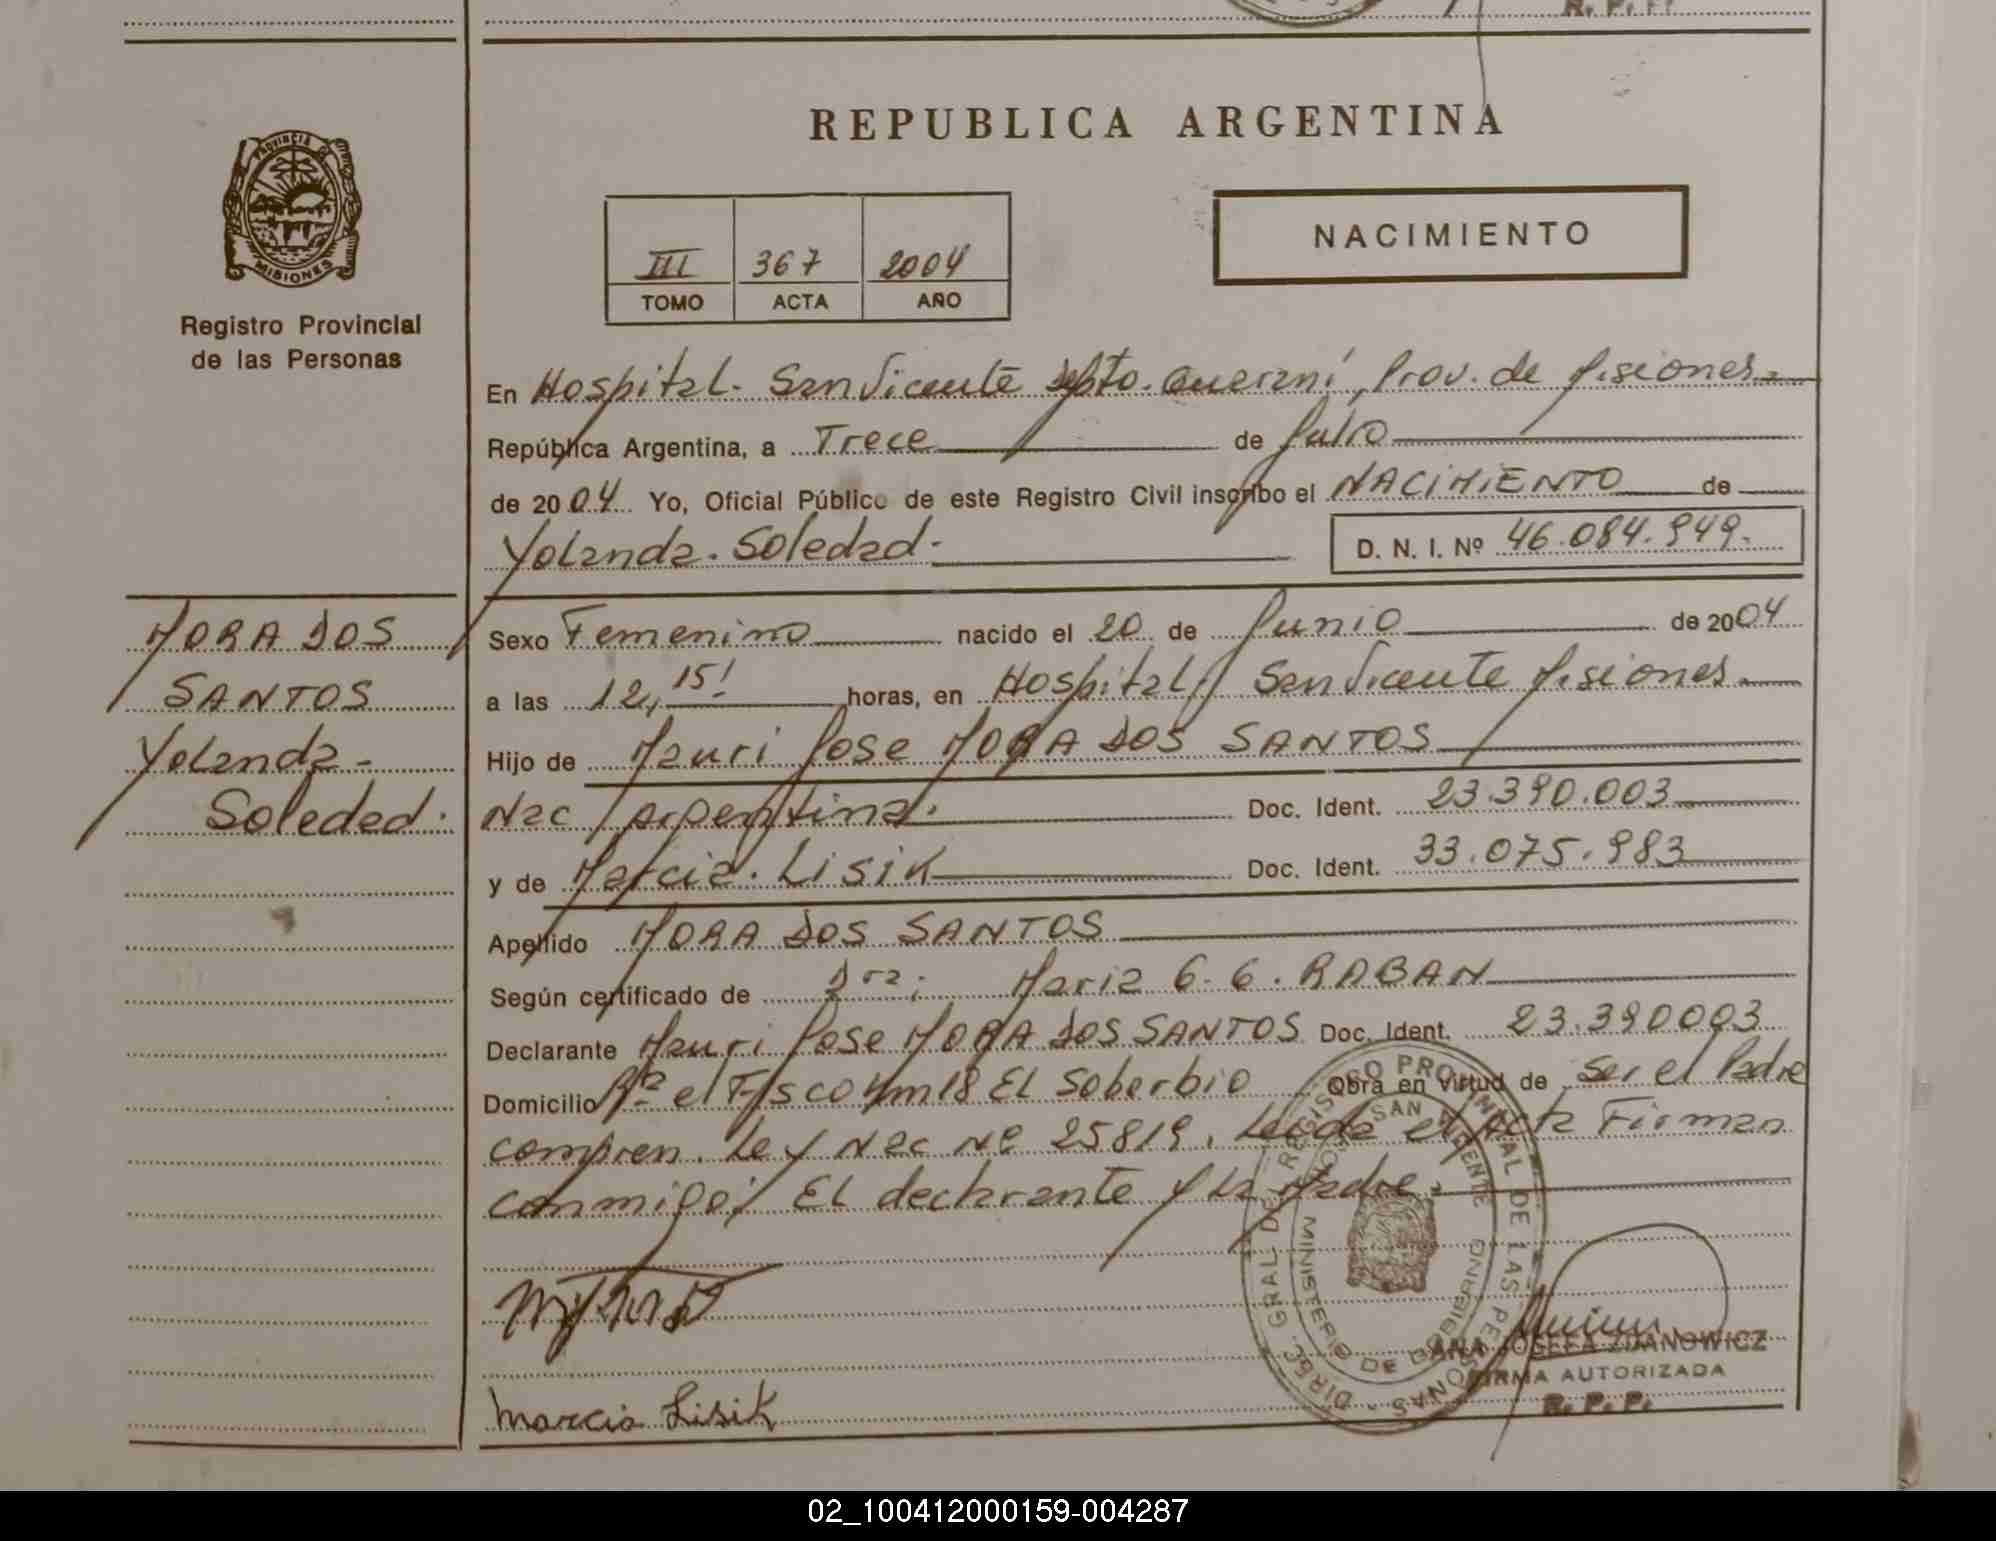 R. P. P.
PROVINCIA DE
MISIONES
Registro Provincial
de las Personas
REPUBLICA ARGENTINA
III 367 2004
TOMO ACTA AÑO
NACIMIENTO
En Hospital. San Vicente Dpto. Guarani, Prov. de Misiones.
República Argentina, a Trece de Julio
de 2004 Yo, Oficial Público de este Registro Civil inscribo el NACIMIENTO de
Yolanda. Soledad. D. N. I. Nº 46.084.949.
MORA DOS
SANTOS
Yolanda -
Soledad.
Sexo Femenino nacido el 20 de Junio de 2004
a las 12,15! horas, en Hospital, San Vicente Misiones.
Hijo de Mauri Jose MORA DOS SANTOS
Nac Argentina. Doc. Ident. 23.390.003
y de Marcia. Lisik Doc. Ident. 33.075.983
Apellido MORA DOS SANTOS
Según certificado de Dra; Maria G. G. RABAN
Declarante Mauri Jose MORA DOS SANTOS Doc. Ident. 23.390003
Domicilio el Fisco Km18 El Soberbio Obra en Virtud de ser el Padre
compren. Ley Nac Nº 25819. Leida el Acta Firman
conmigo; El declarante y La Madre.
DIREC. GRAL DEL REGISTRO PROVINCIAL DE LAS PERSONAS -
SAN VICENTE
MINISTERIO DE GOBIERNO
ANA JOSEFA ZDANOWICZ
FIRMA AUTORIZADA
R. P. P.
Marcia Lisik
02_100412000159-004287